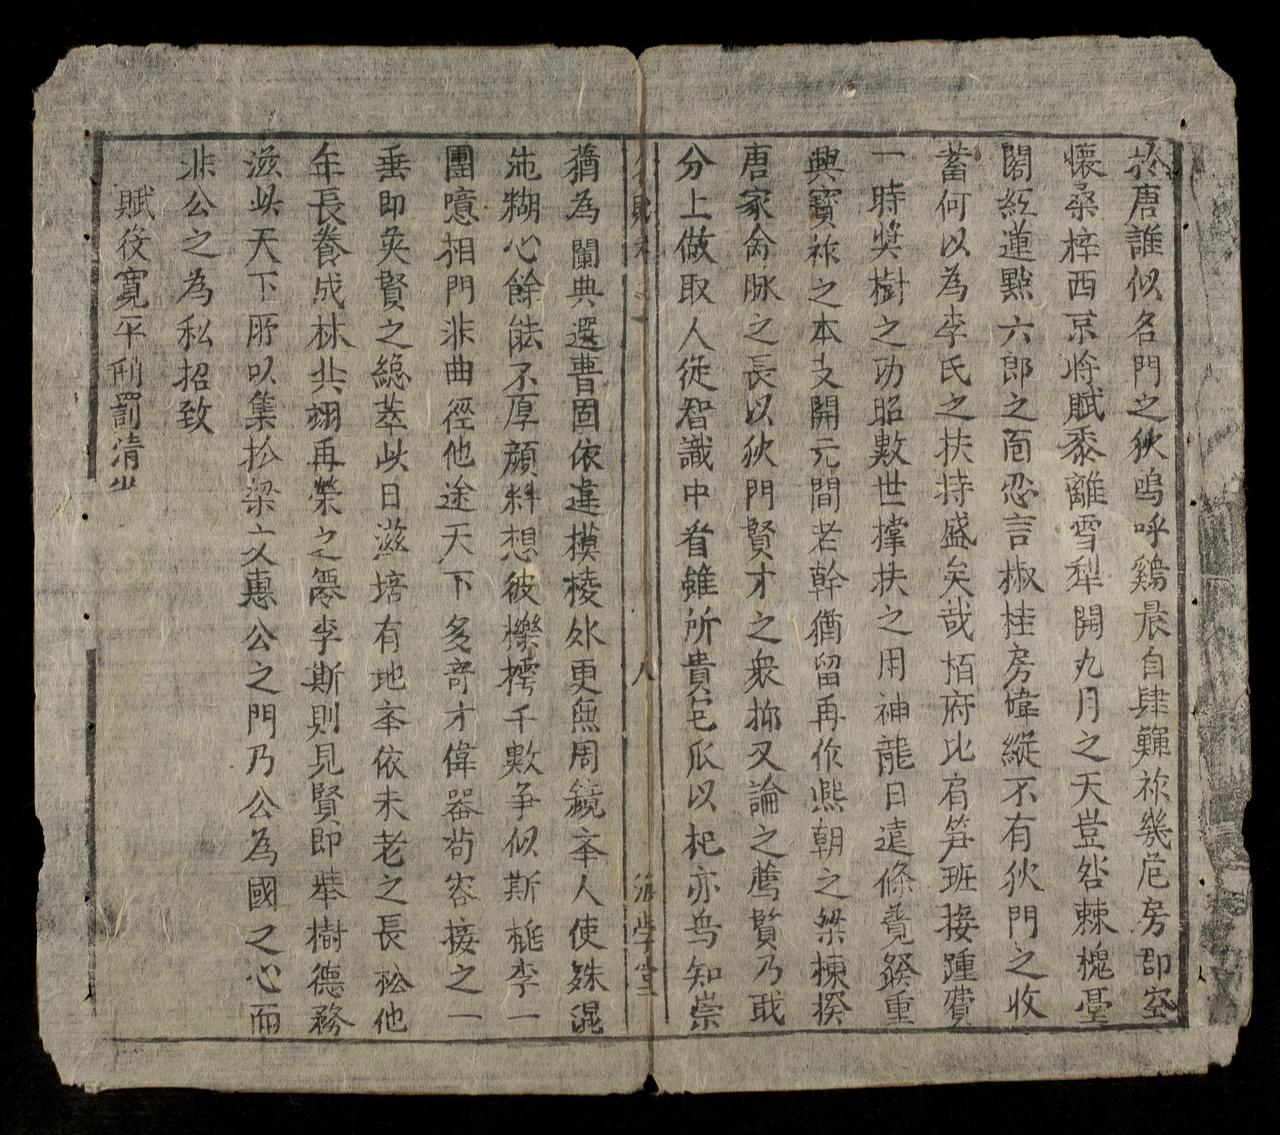 於唐誰似名門之狄嗚呼鷄晨自肆鼲祚幾危房郡空
懷桑梓西京將賦黍離雪犁開九月之天豈咎棘槐臺
閣紅蓮點六郎之面忍言椒桂房偉縱不有狄門之收
蓄何以為李氏之扶持盛矣哉栢府比肩笋班接踵費
一時奬樹之功昭數世撑扶之用神龍日遠條薨發重
興寳祚之本支開元間老幹猶留再作熙朝之梁棟揆
唐家命脉之長以狄門賢才之衆抑又論之薦賢乃職
分上做取人從智識中看雖所貴包瓜以杞亦無知崇
八
海學堂
猶為闌典選曹固依違模棱外更無周鏡奈人使姝混
沲糊心餘能不厚顔料想彼櫟樗千數争似斯桃李一
團噫相門非曲徑他途天下多竒才偉器苟容接之一
垂即英賢之總萃此日滋培有地奈依未老之長松他
年長養成林共栩再榮之零李斯則見賢即舉樹德務
滋此天下所以集於梁文惠公之門乃公為國之心而
非公之為私招致
賦役寛平刑罰清